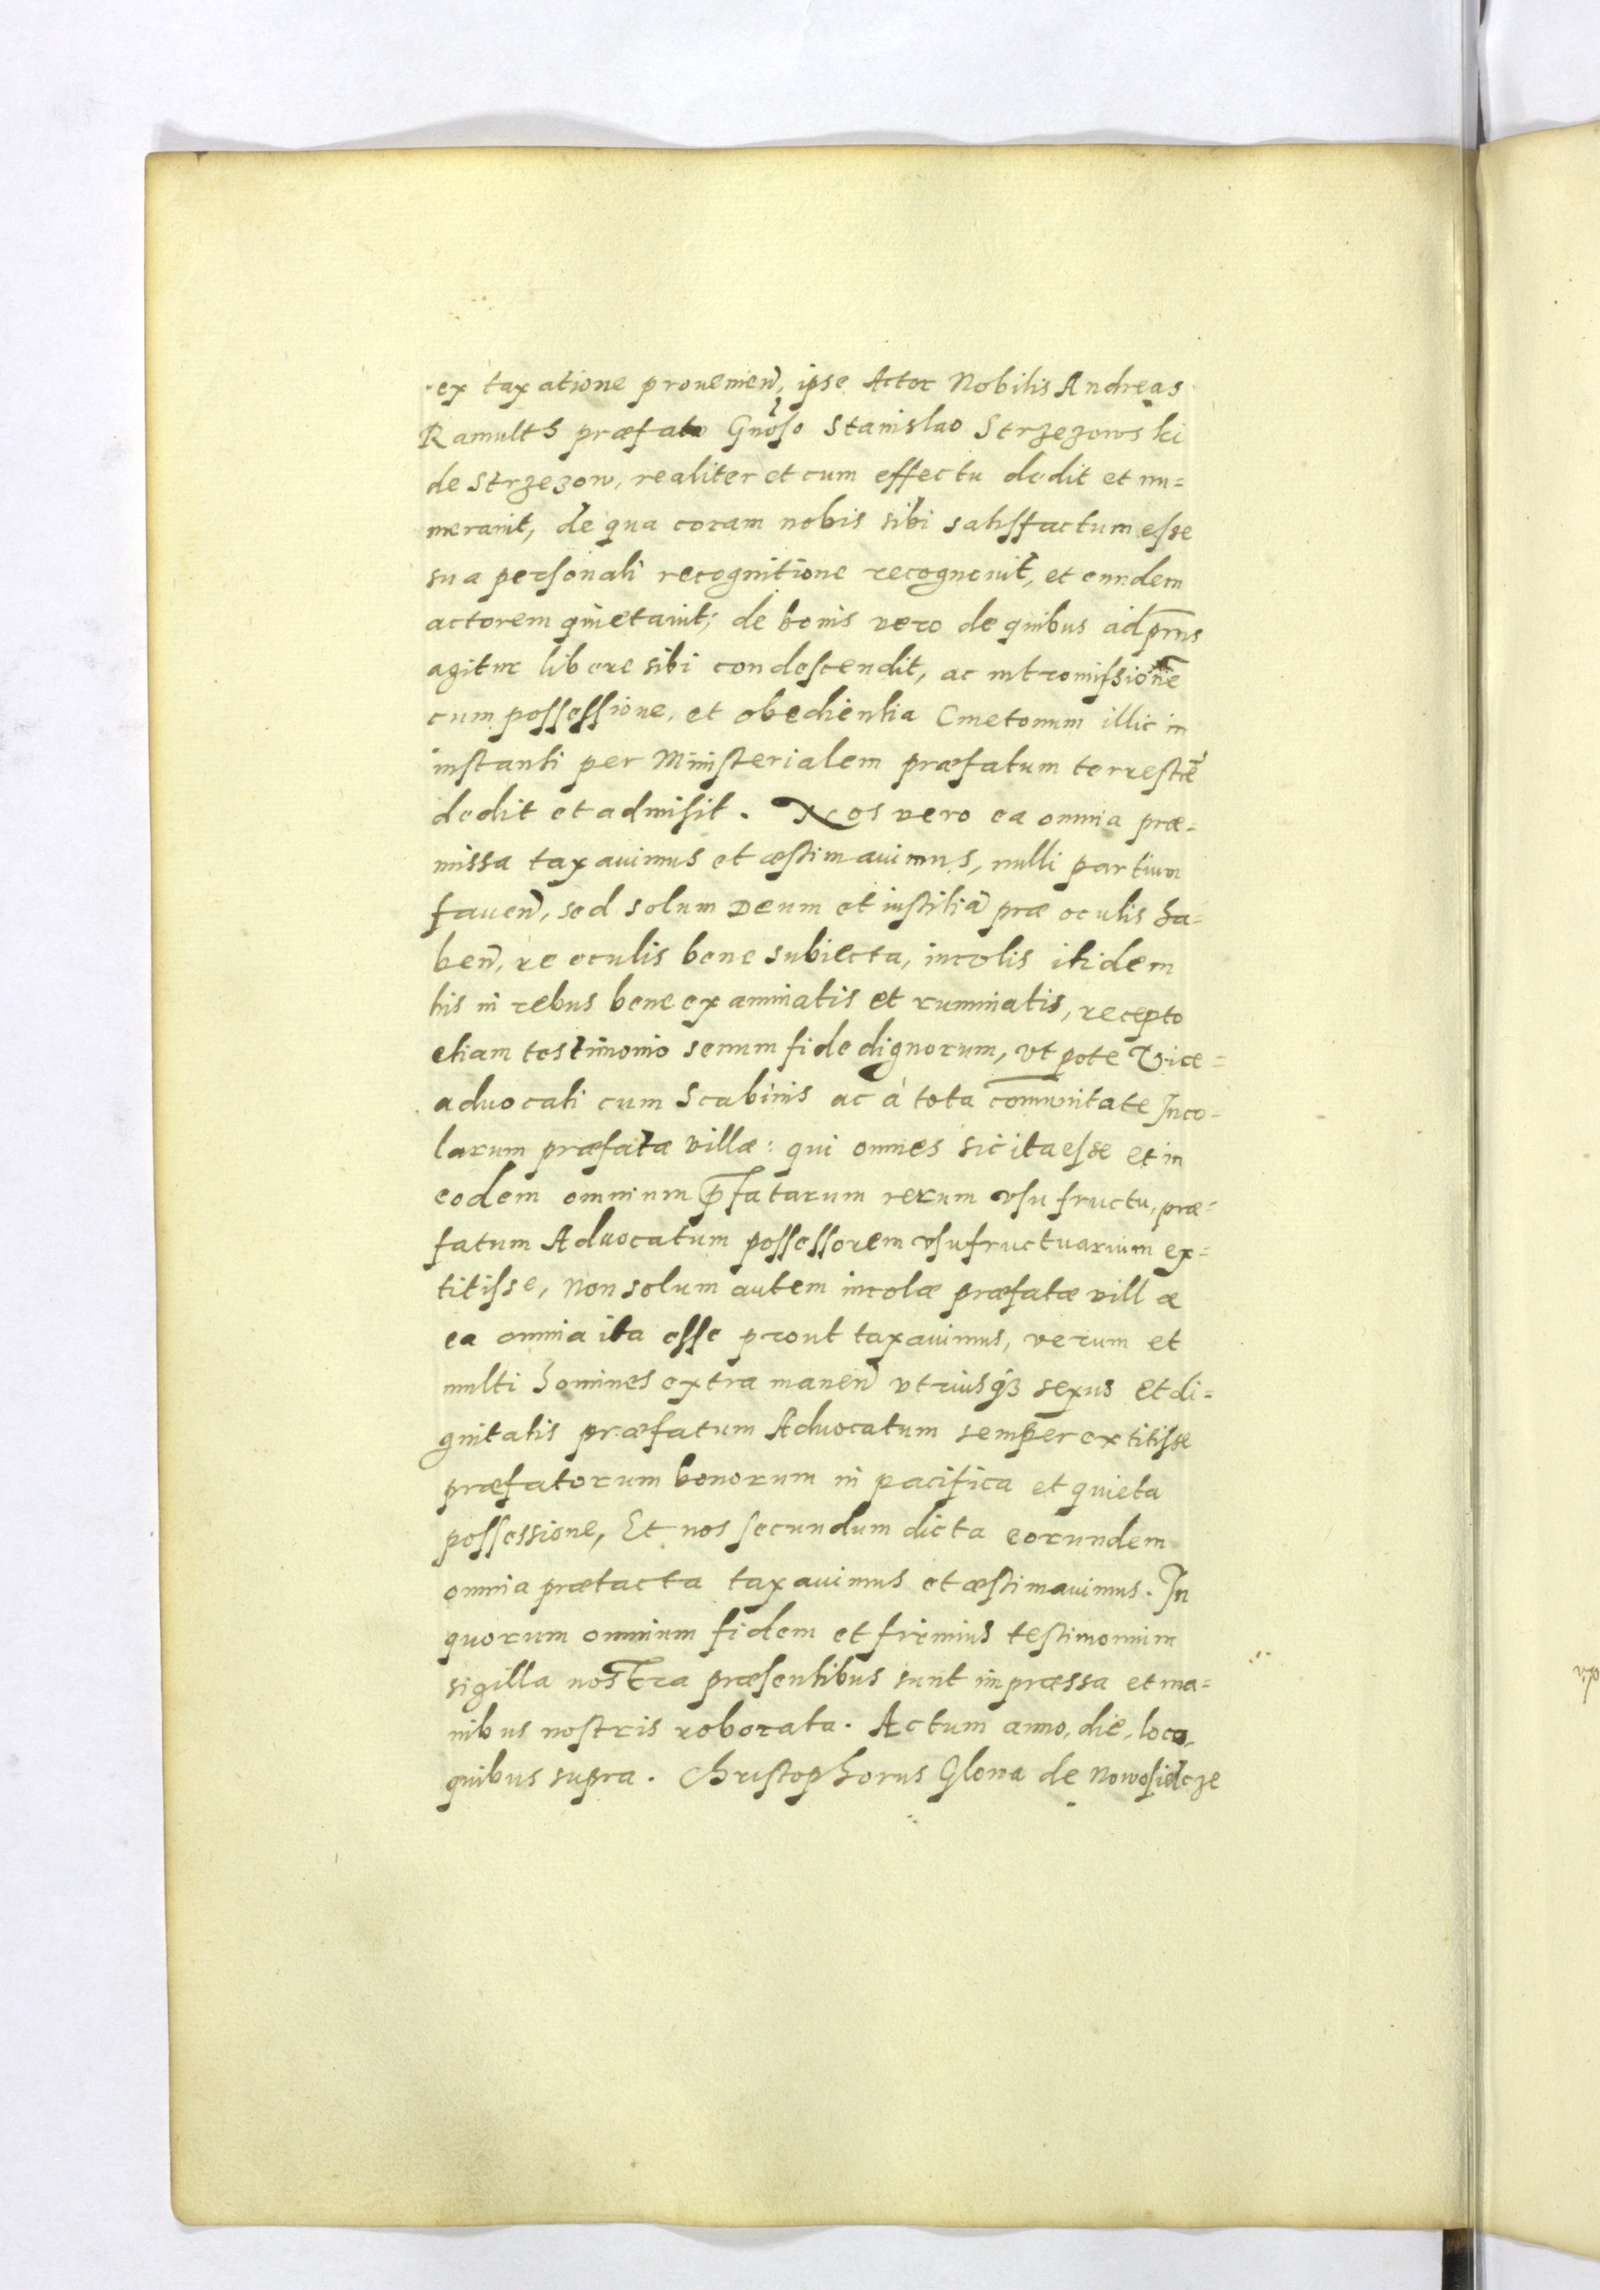 ex taxatione prouenieñ, ipse Actor Nobilis Andreas
Ramulth præfato Gnoso Stanislao Strzezowski
de Strzezow, realiter et cum effectu dedit et nu=
merauit, de qua coram nobis sibi satisfactum esse
sua personali recognitione recognouit, et eundem
actorem quietauit; de bonis vero de quibus ad p̄ns
agitur libere sibi condescendit, ac intromissionē
cum possessione, et obedientia Cmetonum illic in
instanti per Ministerialem præfatum terrestrē
dedit et admisit. Nos vero ea omnia præ=
missa taxauimus et æstimauimus, nulli partium
faueñ, sed solum Deum et iustitiā præ oculis ha=
beñ, re oculis bene subiecta, incolis itidem
his in rebus bene examinatis et ruminatis, recepto
etiam testimonio senum fide dignorum, vt pote Vice=
aduocati cum Scabinis ac à tota comunitate Inco=
larum præfatæ villæ: qui omnes sic ita esse et in
eodem omnium p̄fatarum rerum vsu fructu, præ=
fatum Aduocatum possessorem vsufructuarium ex=
titisse, Non solum autem incolæ præfatæ villæ
ea omnia ita esse prout taxauimus, verum et
multi homines extra maneñ vtriusq3 sexus et di=
gnitatis præfatum Aduocatum semper extitisse
præfatorum bonorum in pacifica et quieta
possessione, Et nos secundum dicta eorundem
omnia prætacta taxauimus et æstimauimus. In
quorum omnium fidem et firmius testimonium
sigilla nostra præsentibus sunt impræssa et ma=
nibus nostris roborata. Actum anno, die, loco,
quibus supra. Christophorus Glowa de Nowosielcze